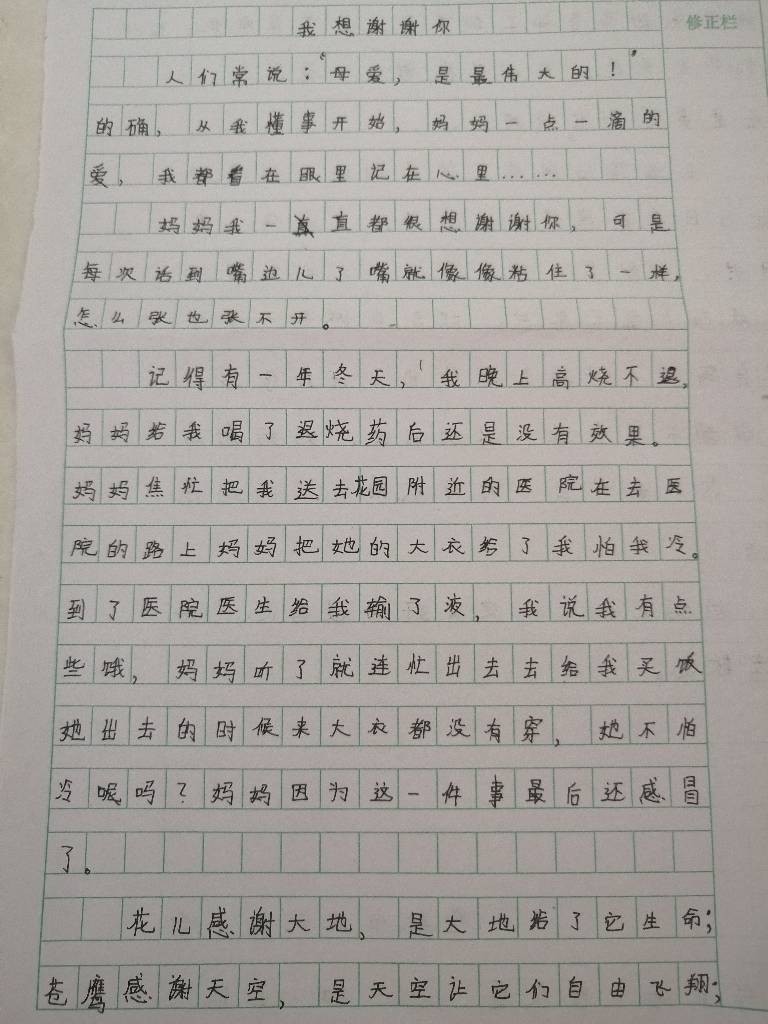 我想谢谢你
修正栏
人们常说：“母爱，是最伟大的！”
的确，从我懂事开始，妈妈一点一滴的
爱，我都看在眼里记在心里……
妈妈我一直都很想谢谢你，可是
每次话到嘴边儿了嘴就像像粘住了一样，
怎么张也张不开。
记得有一年冬天，我晚上高烧不退，
妈妈给我喝了退烧药后还是没有效果。
妈妈焦忙把我送去花园附近的医院在去医
院的路上妈妈把她的大衣给了我怕我冷。
到了医院医生给我输了液，我说我有点
些饿，妈妈听了就连忙出去去给我买饭
她出去的时候来大衣都没有穿，她不怕
冷呢吗？妈妈因为这一件事最后还感冒
了。
花儿感谢大地，是大地给了它生命；
苍鹰感谢天空，是天空让它们自由飞翔；